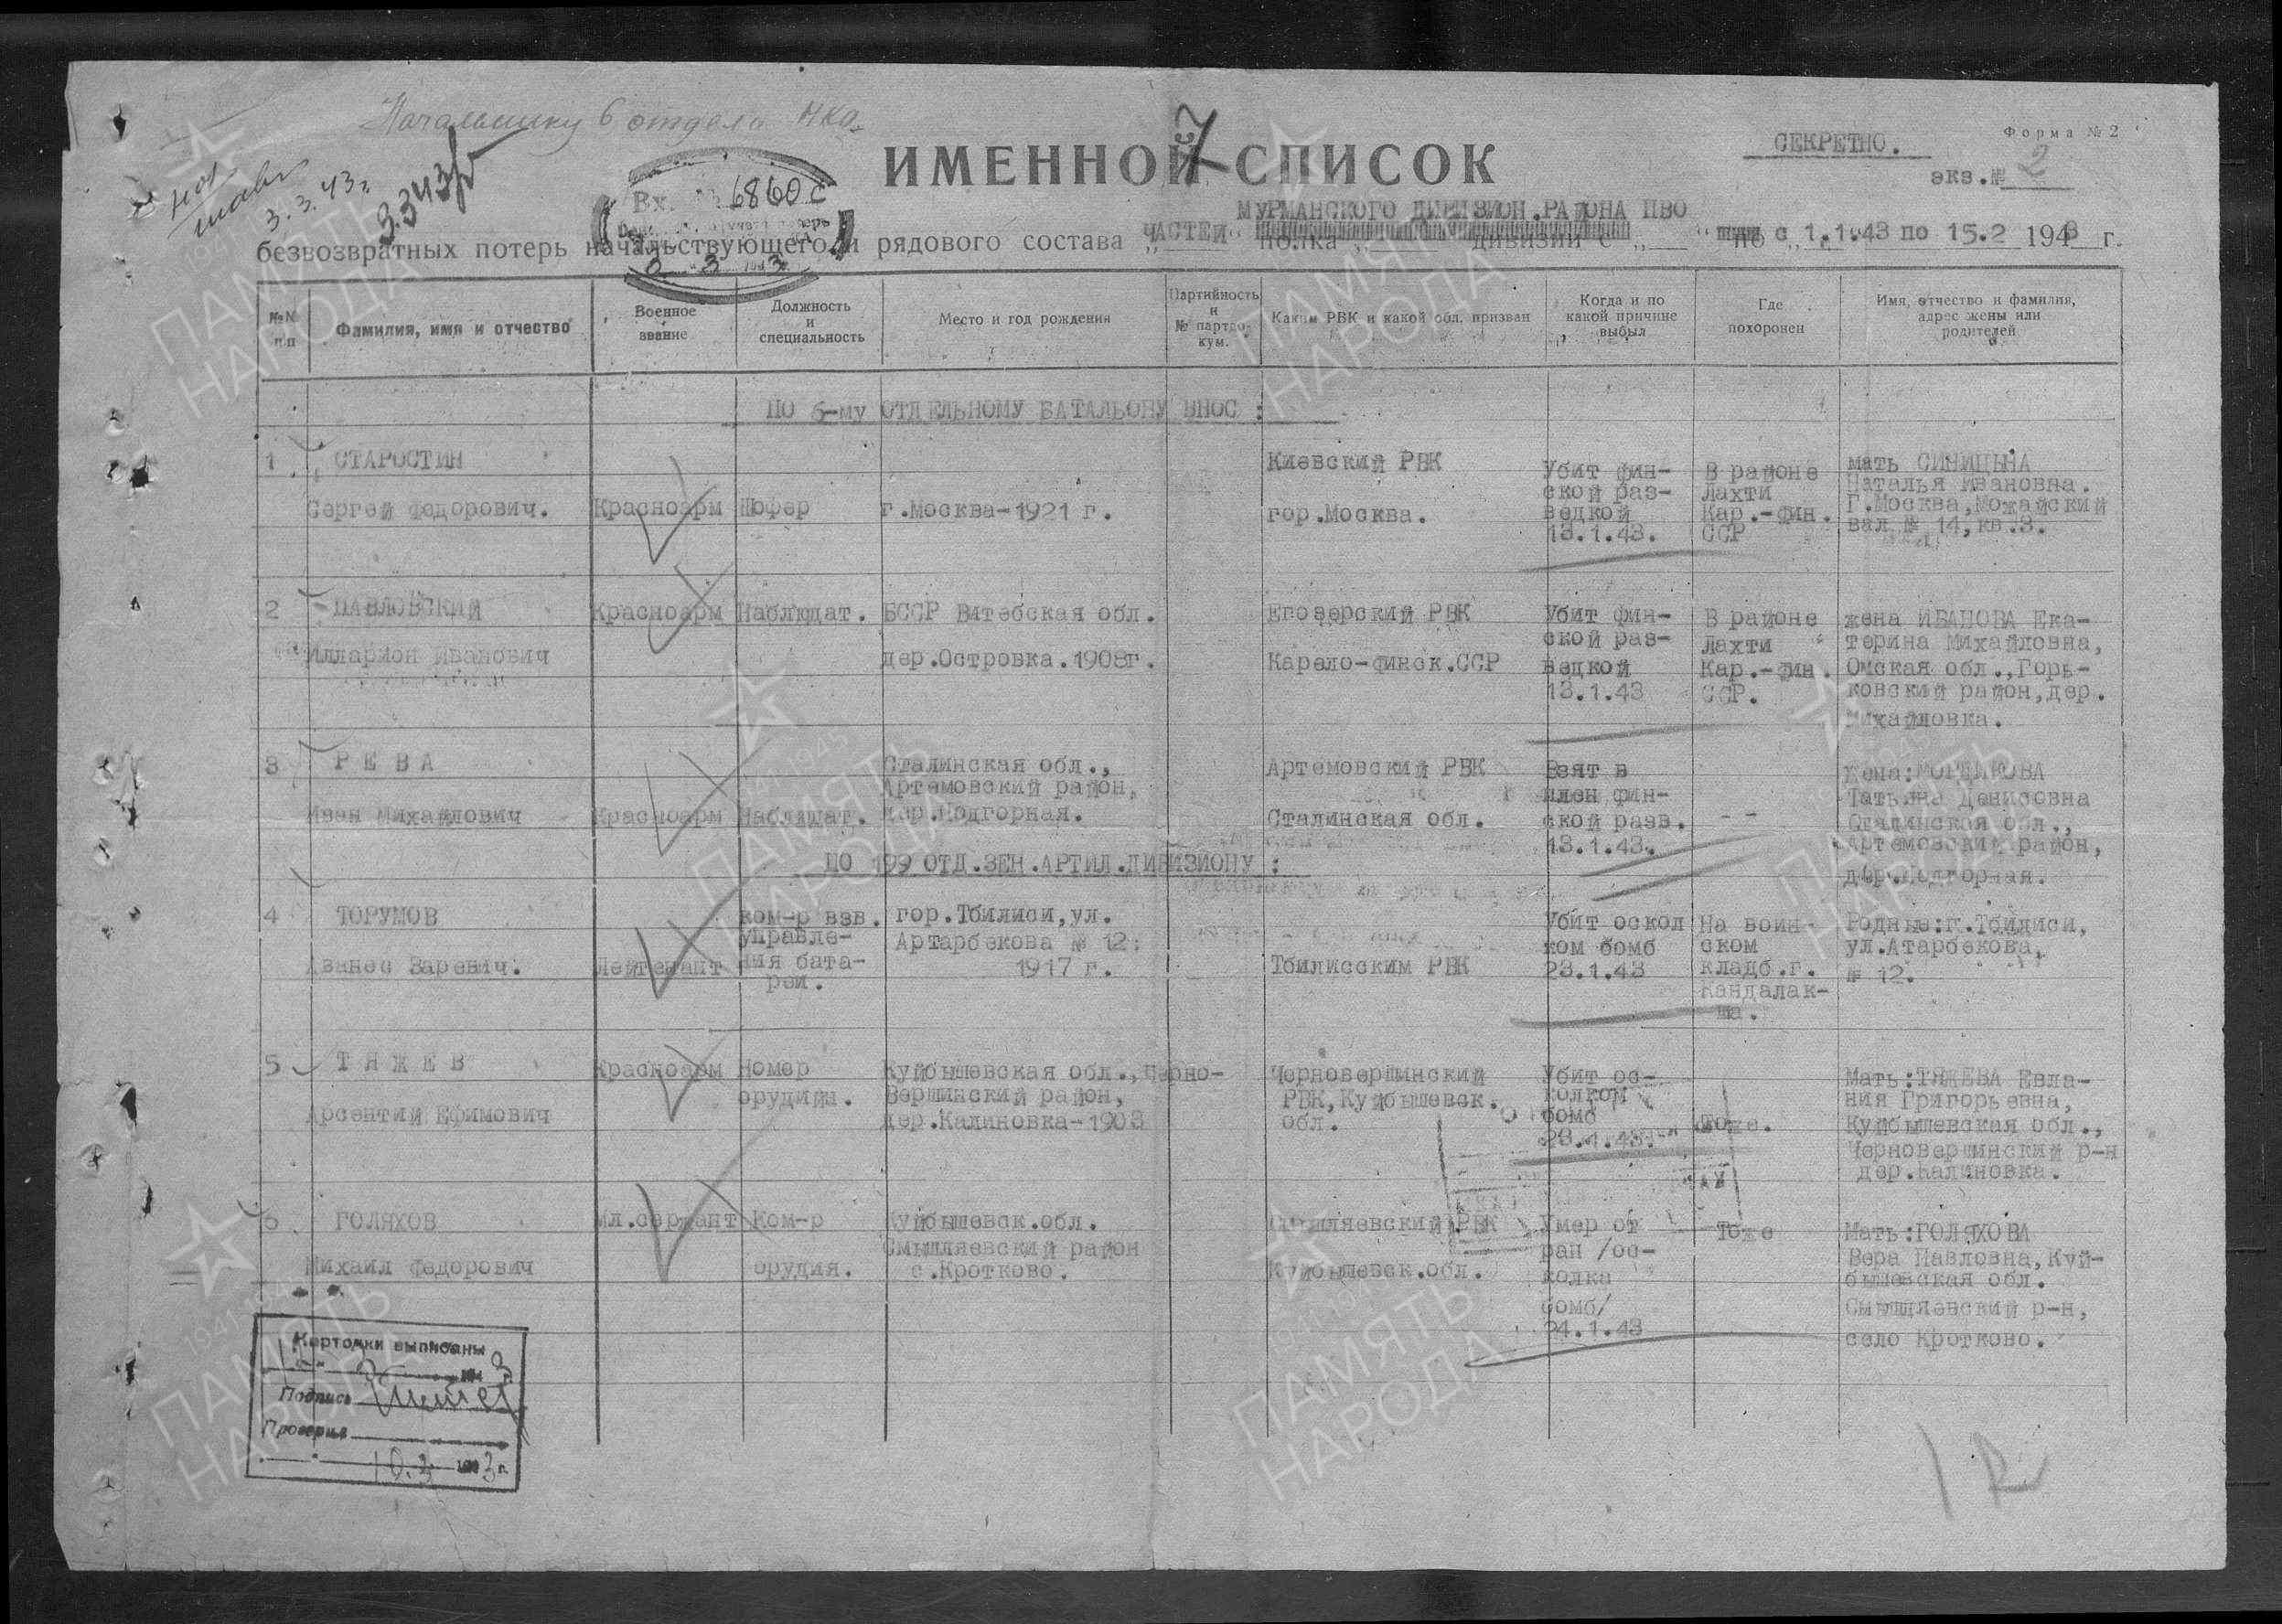 Начальнику 6 отдела НКО
3.3.43г.
ИМЕННОЙ СПИСОК
СЕКРЕТНО.
Форма № 2
экз.№ 2
Вх. 6860с
МУРМАНСКОГО ДИВИЗИОН.РАЙОНА ПВО
безвозвратных потерь начальствующего и рядового состава „ЧАСТЕЙ“ полка дивизии с по с 1.1.43 по 15.2 1943 г.
№№ п.п
Фамилия, имя и отчество
Военное звание
Должность и специальность
Место и год рождения
Партийность и № партдокум.
Каким РВК и какой обл. призван
Когда и по какой причине выбыл
Где похоронен
Имя, отчество и фамилия, адрес жены или родителей
ПО 6-му ОТДЕЛЬНОМУ БАТАЛЬОНУ ВНОС :
1 СТАРОСТИН
Сергей Федорович.
Красноарм
Шофер
г.Москва-1921 г.
Киевский РВК
гор.Москва.
Убит фин-
ской раз-
ведкой
13.1.43.
В районе
Лахти
Кар.-Фин.
ССР
мать СИНИЦЫНА
Наталья Ивановна.
Г.Москва,Можайский
вал № 14,кв.3.
2 ПАВЛОВСКИЙ
Илларион Иванович
Красноарм
Наблюдат.
БССР Витебская обл.
дер.Островка.1908г.
Егозерский РВК
Карело-Финск.ССР
Убит фин-
ской раз-
ведкой
13.1.43
В районе
Лахти
Кар.-Фин.
ССР.
жена ИВАНОВА Ека-
терина Михайловна,
Омская обл.,Горь-
ковский район,дер.
Михайловка.
3 Р Е В А
Иван Михайлович
Красноарм
Наблюдат.
Сталинская обл.,
Артемовский район,
дер.Подгорная.
Артемовский РВК
Сталинская обл.
Взят в
плен фин-
ской разв.
13.1.43.
- -
Жена:
Татьяна Денисовна
Сталинская обл.,
Артемовский район,
дер.Подгорная.
ПО 199 ОТД.ЗЕН.АРТИЛ.ДИВИЗИОНУ :
4 ТОРУМОВ
Аванес Заревич.
Лейтенант
ком-р взв.
управле-
ния бата-
реи.
гор.Тбилиси,ул.
Артарбекова № 12;
1917 г.
Тбилисским РВК
Убит оскол
ком бомб
23.1.43
На воин-
ском
кладб.г.
Кандалак-
ша.
Родные:г.Тбилиси,
ул.Атарбекова,
№ 12.
5 Т Я Ж Е В
Арсентий Ефимович
Красноарм
Номер
орудия.
Куйбышевская обл.,Черно-
Вершинский район,
дер.Калиновка-1908
Черновершинский
РВК,Куйбышевск.
обл.
Убит ос-
колком
бомб
23.1.43г.
Тоже.
Мать:ТЯЖЕВА Евла-
ния Григорьевна,
Куйбышевская обл.,
Черновершинский р-н
дер.Калиновка.
6 ГОЛЯХОВ
Михаил Федорович
Мл.сержант
Ком-р
орудия.
Куйбышевск.обл.
Смышляевский район
с.Кротково.
Смышляевский РВК
Куйбышевск.обл.
Умер от
ран /ос-
колка
бомб/
24.1.43
Тоже
Мать:ГОЛЯХОВА
Вера Павловна,Куй-
бышевская обл.
Смышляевский р-н,
село Кротково.
Карточки выписаны
Подпись
Проверил
10.3 1943 г.
ПАМЯТЬ
НАРОДА
1941-1945